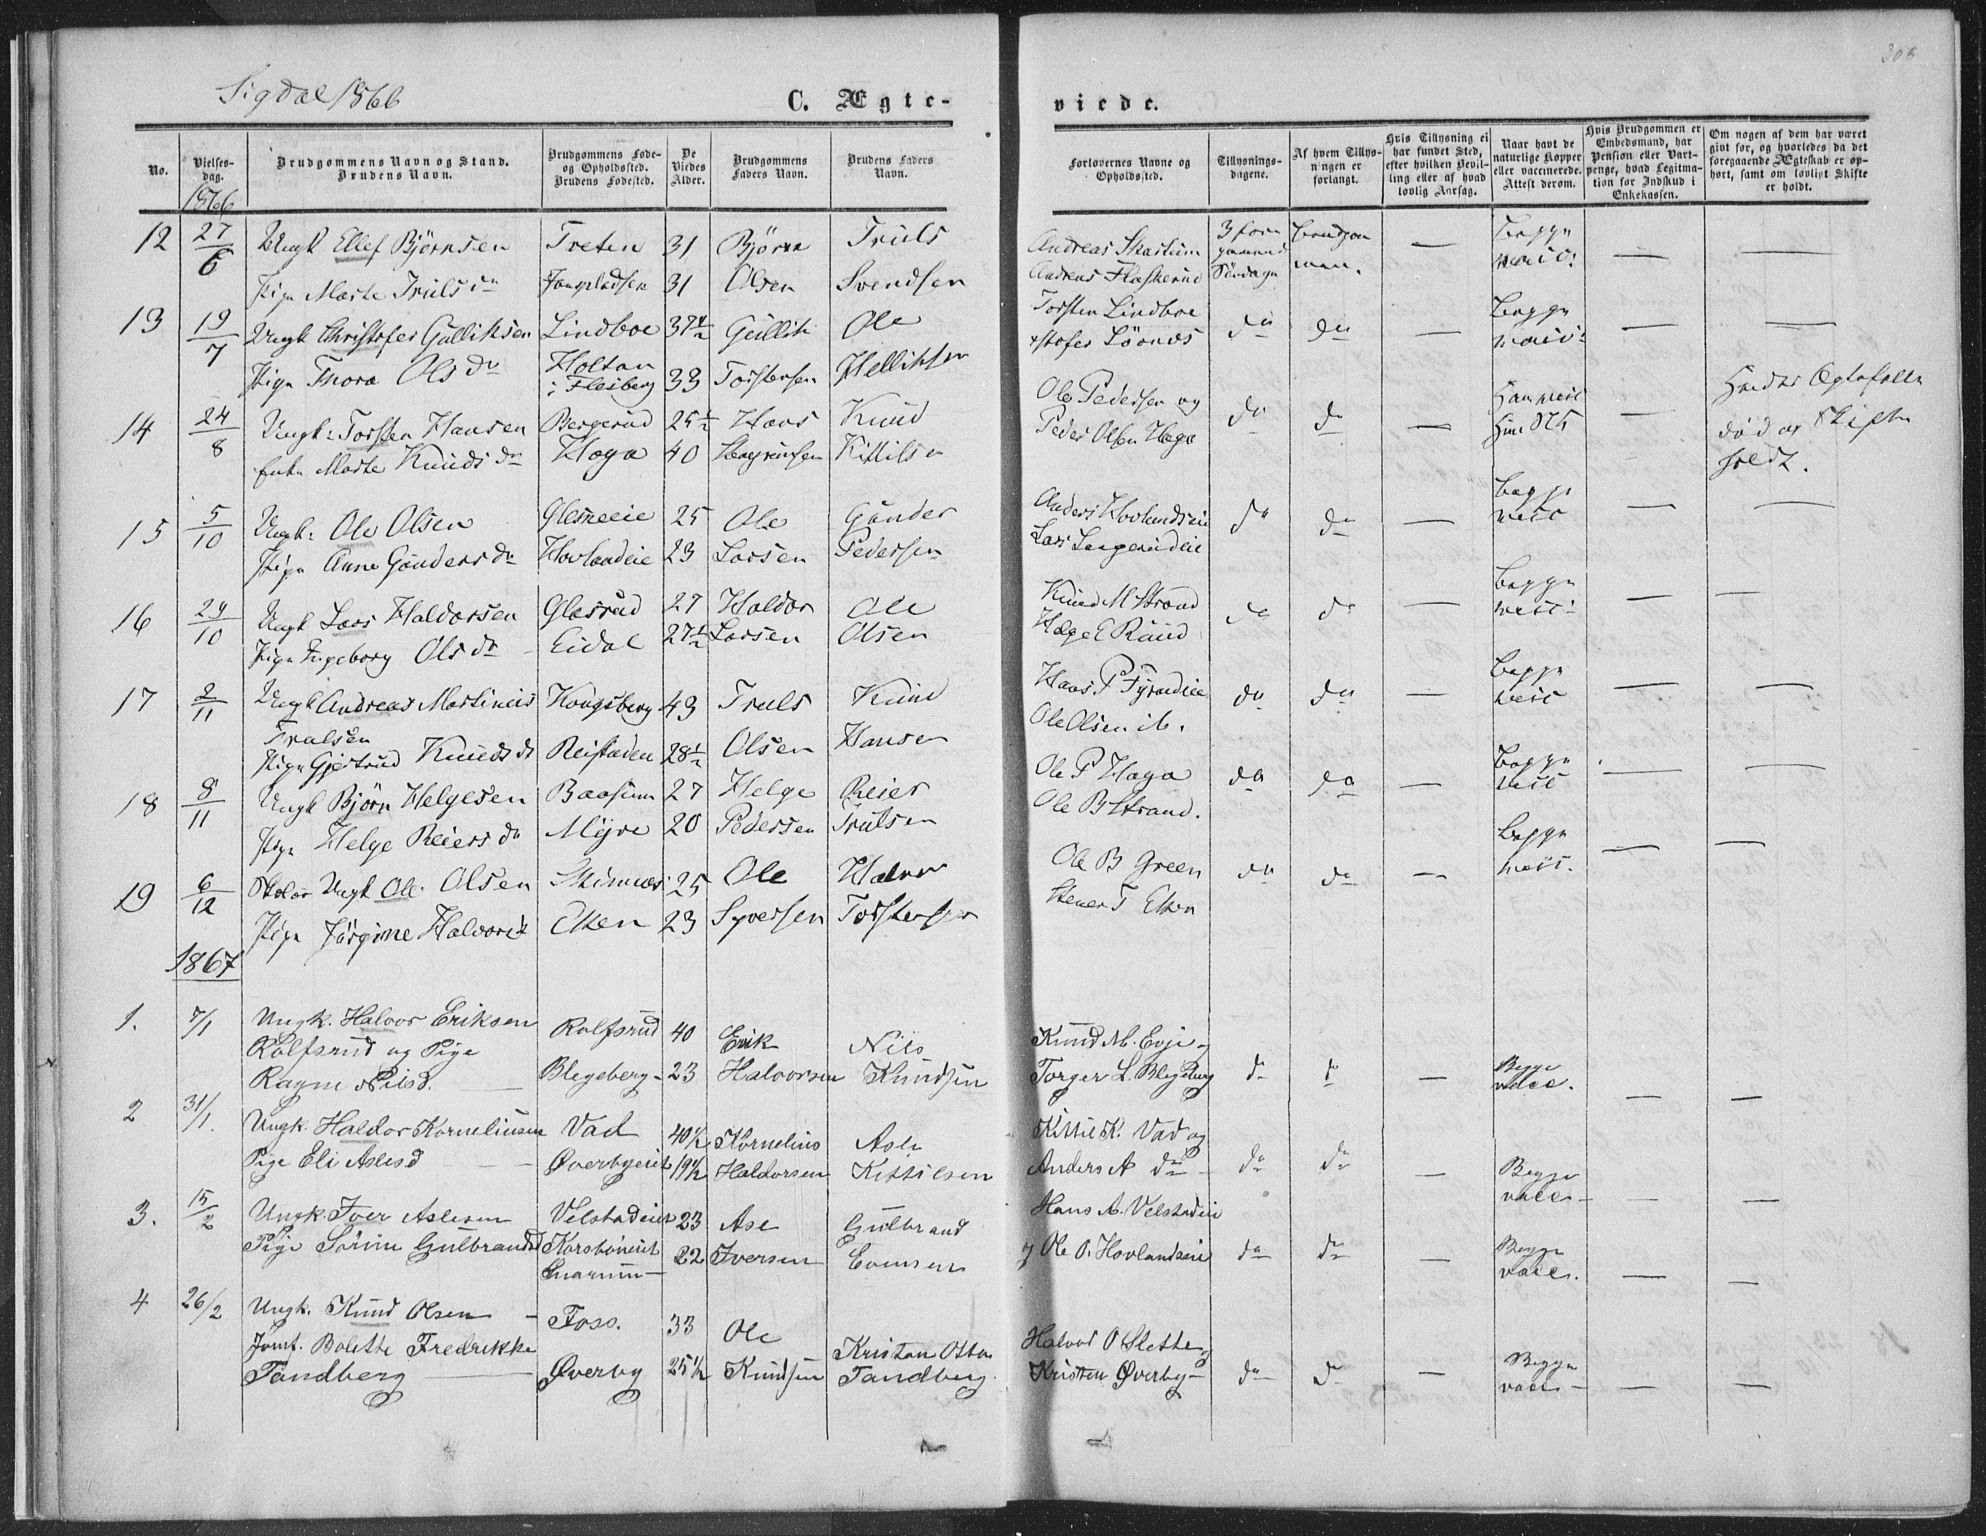 306
Sigdal 1866
C. Ægte-
viede.
No.
Vielses-
dag.
Brudgommens Navn og Stand.
Brudens Navn.
Brudgommens Føde-
og Opholdssted.
Brudens Fødested.
De
Viedes
Alder.
Brudgommens
Faders Navn.
Brudens Faders
Navn.
Forlovernes Navne og
Opholdssted.
Tillysnings-
dagene.
Af hvem Tillys-
ningen er
forlangt.
Hvis Tillysning ei
har fundet Sted,
efter hvilken Bevil-
ling eller af hvad
lovlig Aarsag.
Naar havt de
naturlige Kopper
eller vaccinerede.
Attest derom.
Hvis Brudgommen er
Embedsmand, har
Pension eller Vart-
penge, hvad Legitima-
tion for Indskud i
Enkekassen.
Om nogen af dem har været
givt før, og hvorledes da det
foregaaende Ægteskab er op-
hørt, samt om lovligt Skifte
er holdt.
1866
12 27/6 Ungk Ellef Björnsen Treten 31 Björn Truls Andreas Skartum 3 Begge
Pige Marte Truls dr 31 Olsen Svendsen Andreas Flaskerud Søndage vacc:
13 19/7 Ungk Christofer Gulliksen Lindboe 37 1/2 Gullik Ole Torsten Lindboe do do Begge
Pige Thora Ols dr Holtan i Flesberg 33 Torstensen Helliksen vacc:
14 24/8 Ungk: Torsten Hansen Bergerud 25 1/2 Hans Knud Ole Pedersen og do do Han vacc
Enke Marte Knuds dr Haga 40 Kittilsen Peder Olsen Haga Hun død og Skifte
holdt.
15 5/10 Ungk: Ole Olsen Glesneeie 25 Ole Gunder Anders Hovlandseie do do Begge
Pige Anne Gunders dr Hovlandeie 23 Larsen Pedersen Lars vacc
16 29/10 Ungk Lars Haldorsen Glesrud 27 Haldor Ole Knud M Strand do do Begge
Pige Ingeborg Ols dr Eidal 27 1/2 Larsen Olsen Helge E Ruud vacc:
17 2/11 Ungk Andreas Martinius Kongsberg 43 Truls Knud Hans P do do Begge
Trulsen Ole Olsen vacc
Pige Gjertrud Knuds dr Reistaden 28 1/2 Olsen Hansen
18 8/11 Ungk Björn Helgesen Baasum 27 Helge Reier Ole P Haga do do Begge
Pige Helge Reiers dr Myre 20 Pedersen Trulsen Ole B Strand. vacc
19 6/12 Ungk Ole Olsen 25 Ole Halvor Ole B Green do do Begge
Pige Jörgine Halvors Eken 23 Syversen Torstensen Stener T Eken vacc.
1867
1. 7/1 Ungk. Halvor Eriksen Rolfsrud 40 Erik Nils Knud M. Evje og
Rolfsrud og Pige
Ragne Nilsd. Blegeberg 23 Halvorsen Knudsen Torger L. Blegeberg do do Begge
vacc.
2 31/1. Ungk. Haldor Korneliussen Vad 40 1/2 Kornelius Asle Kittil K. Vad og
Pige Eli Aslesd Øverbyeiet 19 1/2 Haldorsen Kittilsen Anders A do do do Begge
vacc
3. 15/2 Ungk. Iver Aslesen Velstadeiet 23 Asle Gulbrand Hans A. Velstadeie
Pige Sørine Gulbrandsd Korsbøneiet 22 Iversen Evensen og Ole O. Hovlandseie do do Begge
Snarum vacc.
4 26/2 Ungk. Knud Olsen Foss. 33 Ole Halvor O Slette og
Jomf. Bolette Fredrikke Kristian Otto
Tandberg Øverby 25 1/2 Knudsen Tandberg. Kristen Øverby do do Begge
vacc